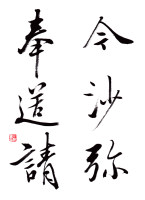 令沙弥
奉送請